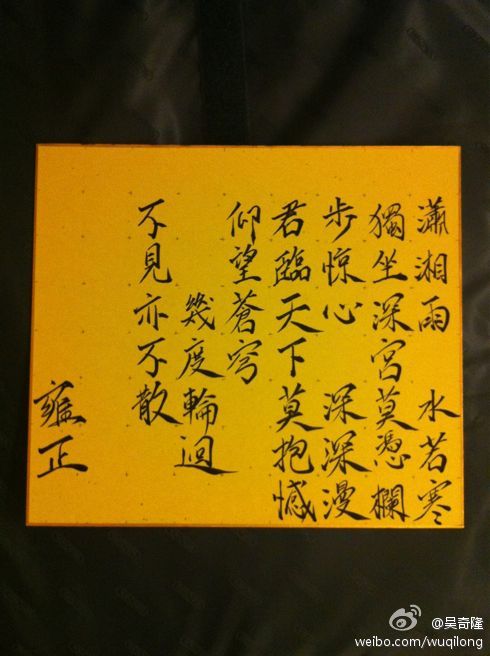 瀟湘雨 水若寒
獨坐深宮莫憑欄
步惊心 深深漫
君臨天下莫抱憾
仰望蒼穹
幾度輪迴
不見亦不散
雍正
@吴奇隆
weibo.com/wuqilong